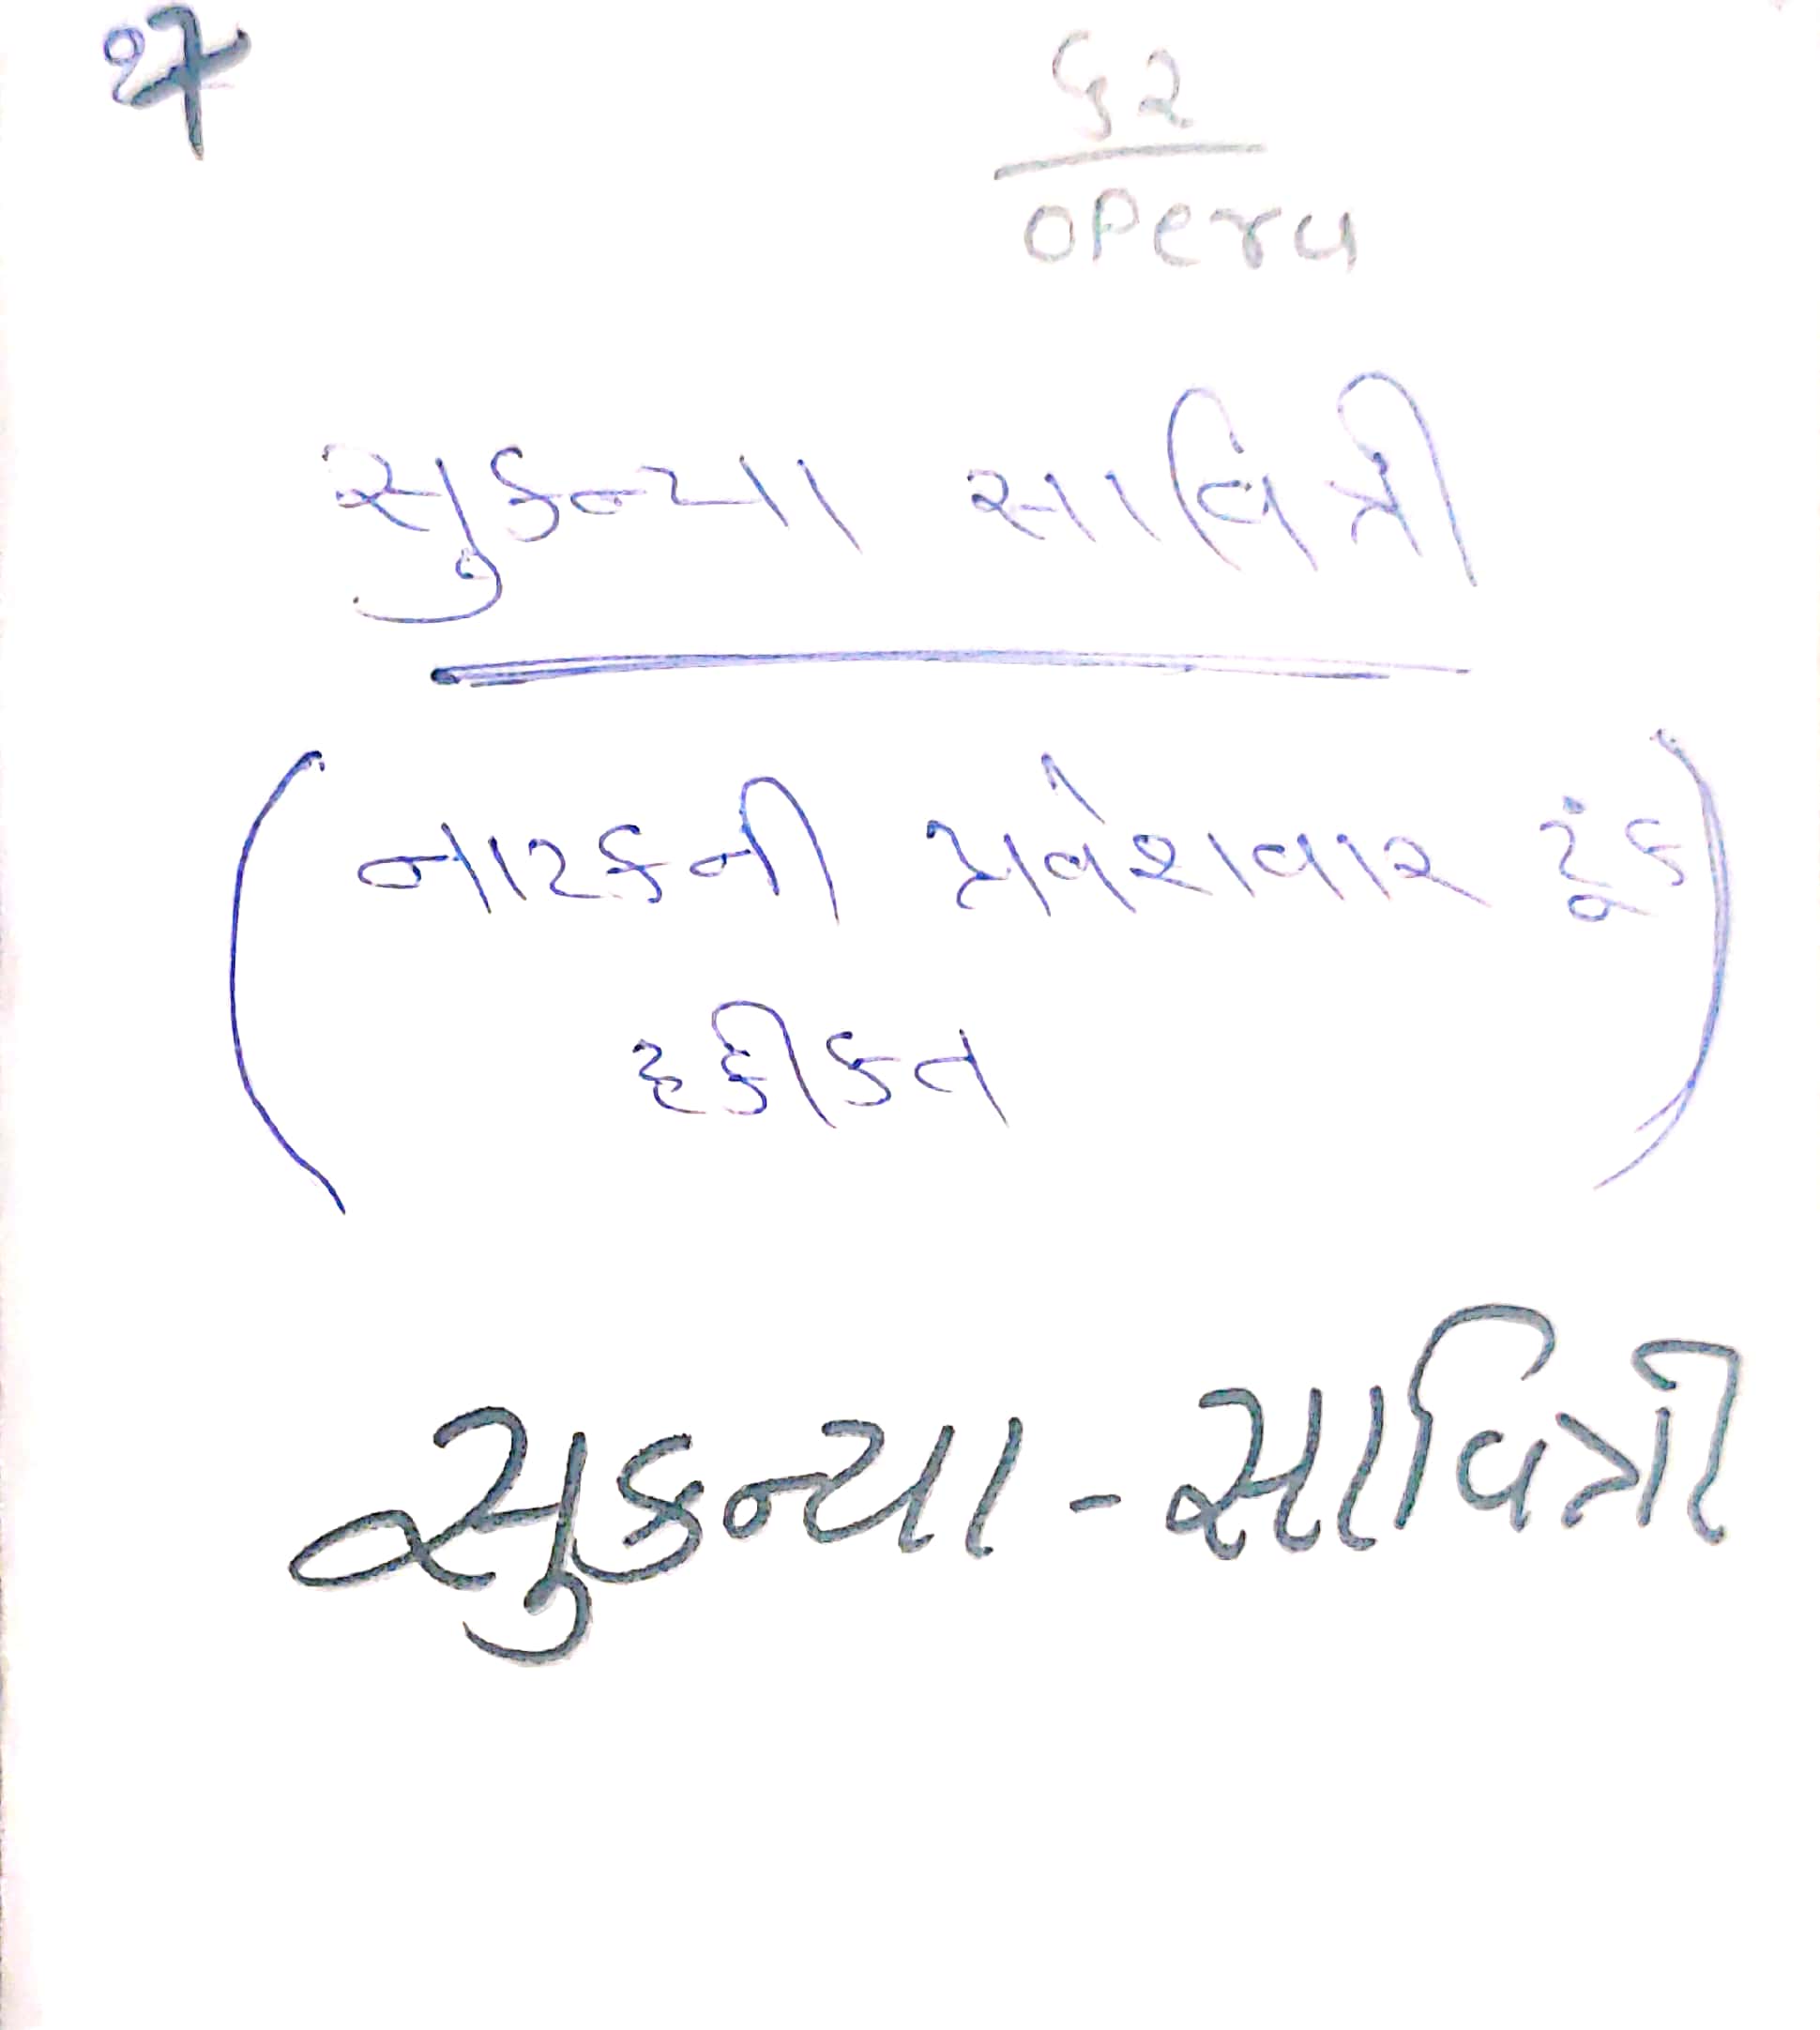 ૬૨
opera
સુકન્યા સાવિત્રી
(નાટકની પ્રવેશવાર ટૂંક
હકીકત)
સુકન્યા-સાવિત્રી